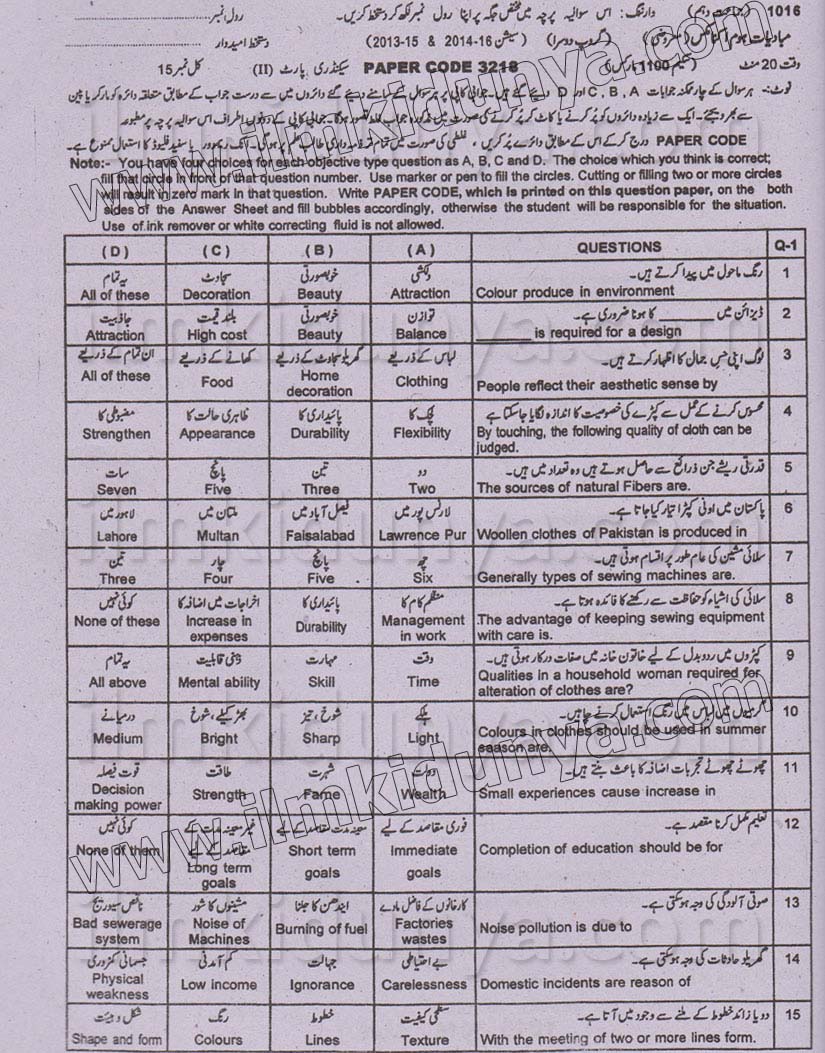 1016 (جماعت دہم) وارننگ: اس سوالیہ پرچہ میں مختص جگہ پر اپنا رول نمبر لکھ کر دستخط کریں۔ رول نمبر
مبادیات ہوم اکنامکس (معروضی) (گروپ دوسرا) (سیشن 2014-16 & 2013-15) دستخط امیدوار
وقت 20 منٹ (سکیم 1100 مارکس) PAPER CODE 3218 سیکنڈری پارٹ (II) کل نمبر 15
نوٹ:- ہر سوال کے چار ممکنہ جوابات C, B, A اور D دیے گئے ہیں۔ جوابی کاپی پر ہر سوال کے سامنے دیے گئے دائروں میں سے درست جواب کے مطابق متعلقہ دائرہ کو مارکر یا پین
سے بھر دیجئے۔ ایک سے زیادہ دائروں کو پُر کرنے یا کاٹ کر پُر کرنے کی صورت میں مذکورہ جواب غلط تصور ہوگا۔ جوابی کاپی کے دونوں اطراف اس سوالیہ پرچہ پر مطبوعہ
PAPER CODE درج کر کے اس کے مطابق دائرے پُر کریں، غلطی کی صورت میں تمام تر ذمہ داری طالب علم پر ہوگی۔ انک ریموور یا سفید فلیوڈ کا استعمال ممنوع ہے۔
Note:- You have four choices for each objective type question as A, B, C and D. The choice which you think is correct;
fill that circle in front of that question number. Use marker or pen to fill the circles. Cutting or filling two or more circles
will result in zero mark in that question. Write PAPER CODE, which is printed on this question paper, on the both
sides of the Answer Sheet and fill bubbles accordingly, otherwise the student will be responsible for the situation.
Use of ink remover or white correcting fluid is not allowed.
(D) (C) (B) (A) QUESTIONS Q-1
یہ تمام سجاوٹ خوبصورتی دلکشی رنگ ماحول میں پیدا کرتے ہیں۔ 1
All of these Decoration Beauty Attraction Colour produce in environment
جاذبیت بلند قیمت خوبصورتی توازن ڈیزائن میں ________ کا ہونا ضروری ہے۔ 2
Attraction High cost Beauty Balance ________ is required for a design
ان تمام کے ذریعے کھانے کے ذریعے گھریلو سجاوٹ کے ذریعے لباس کے ذریعے لوگ اپنی حسِ جمال کا اظہار کرتے ہیں۔ 3
All of these Food Home decoration Clothing People reflect their aesthetic sense by
مضبوطی کا ظاہری حالت کا پائیداری کا لچک کا محسوس کرنے کے عمل سے کپڑے کی خصوصیت کا اندازہ لگایا جا سکتا ہے 4
Strengthen Appearance Durability Flexibility By touching, the following quality of cloth can be
judged.
سات پانچ تین دو قدرتی ریشے جن ذرائع سے حاصل ہوتے ہیں وہ تعداد میں ہیں۔ 5
Seven Five Three Two The sources of natural Fibers are.
لاہور میں ملتان میں فیصل آباد میں لارنس پور میں پاکستان میں اونی کپڑا تیار کیا جاتا ہے۔ 6
Lahore Multan Faisalabad Lawrence Pur Woollen clothes of Pakistan is produced in
تین چار پانچ چھ سلائی مشین کی عام طور پر اقسام ہوتی ہیں۔ 7
Three Four Five Six Generally types of sewing machines are.
کوئی نہیں اخراجات میں اضافہ کا پائیداری کا منظم کام کا سلائی کی اشیاء کو حفاظت سے رکھنے کا فائدہ ہوتا ہے۔ 8
None of these Increase in expenses Durability Management in work The advantage of keeping sewing equipment
with care is.
یہ تمام ذہنی قابلیت مہارت وقت کپڑوں میں ردوبدل کے لیے خاتون خانہ میں صفات درکار ہوتی ہیں۔ 9
All above Mental ability Skill Time Qualities in a household woman required for
alteration of clothes are?
درمیانے بھڑکیلے، شوخ شوخ، تیز ہلکے گرمیوں میں لباس میں رنگ استعمال کرنے چاہیں۔ 10
Medium Bright Sharp Light Colours in clothes should be used in summer
season are.
قوت فیصلہ طاقت شہرت دولت چھوٹے چھوٹے تجربات اضافہ کا باعث بنتے ہیں۔ 11
Decision making power Strength Fame Wealth Small experiences cause increase in
کوئی نہیں غیر معینہ مدت کے مقاصد کے لیے معینہ مدت مقاصد کے لیے فوری مقاصد کے لیے تعلیم مکمل کرنا مقصد ہے۔ 12
None of them Long term goals Short term goals Immediate goals Completion of education should be for
ناقص سیوریج مشینوں کا شور ایندھن کا جلنا کارخانوں کے فاضل مادے صوتی آلودگی کی وجہ ہو سکتی ہے۔ 13
Bad sewerage system Noise of Machines Burning of fuel Factories wastes Noise pollution is due to
جسمانی کمزوری کم آمدنی جہالت بے احتیاطی گھریلو حادثات کی وجہ ہو سکتی ہے۔ 14
Physical weakness Low income Ignorance Carelessness Domestic incidents are reason of
شکل و ہیئت رنگ خطوط سطحی کیفیت دو یا زائد خطوط کے ملنے سے وجود میں آتا ہے۔ 15
Shape and form Colours Lines Texture With the meeting of two or more lines form.
www.ilmkidunya.com
ilmkidunya.com